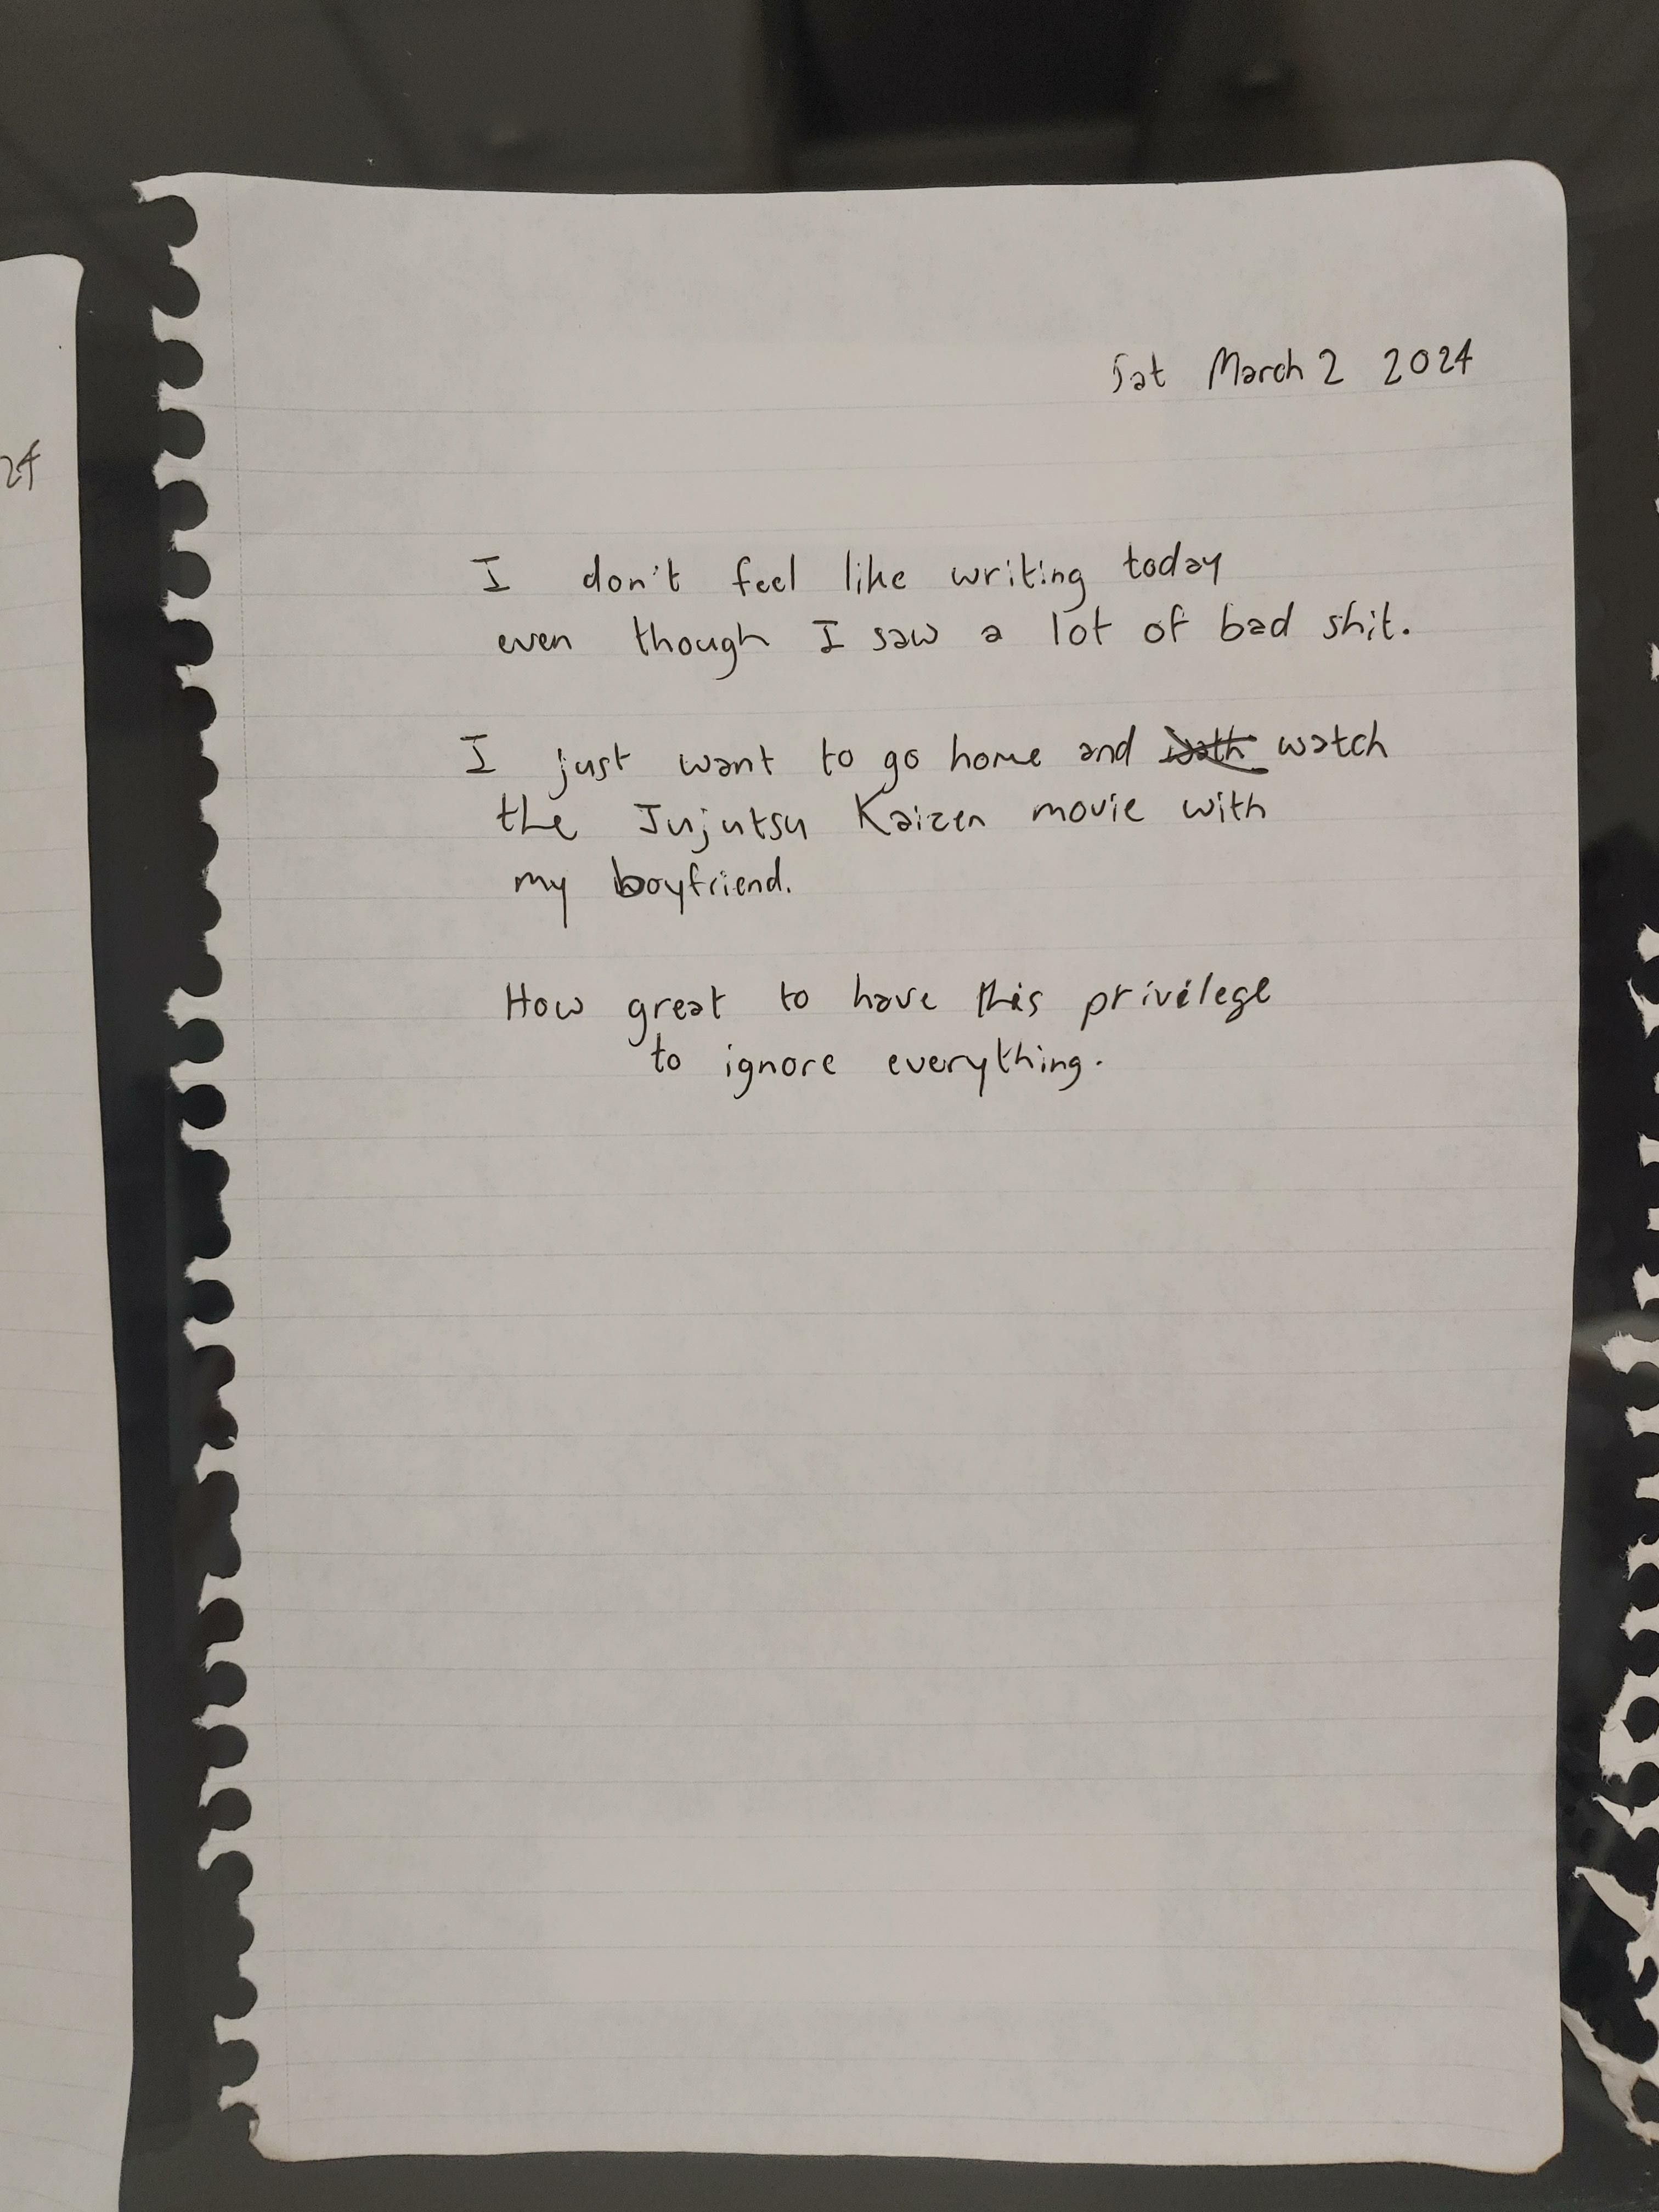 24
Sat March 2 2024
I don't feel like writing today
even though I saw a lot of bad shit.
I just want to go home and wath watch
the Jujutsu Kaizen movie with
my boyfriend.
How great to have this privilege
to ignore everything.